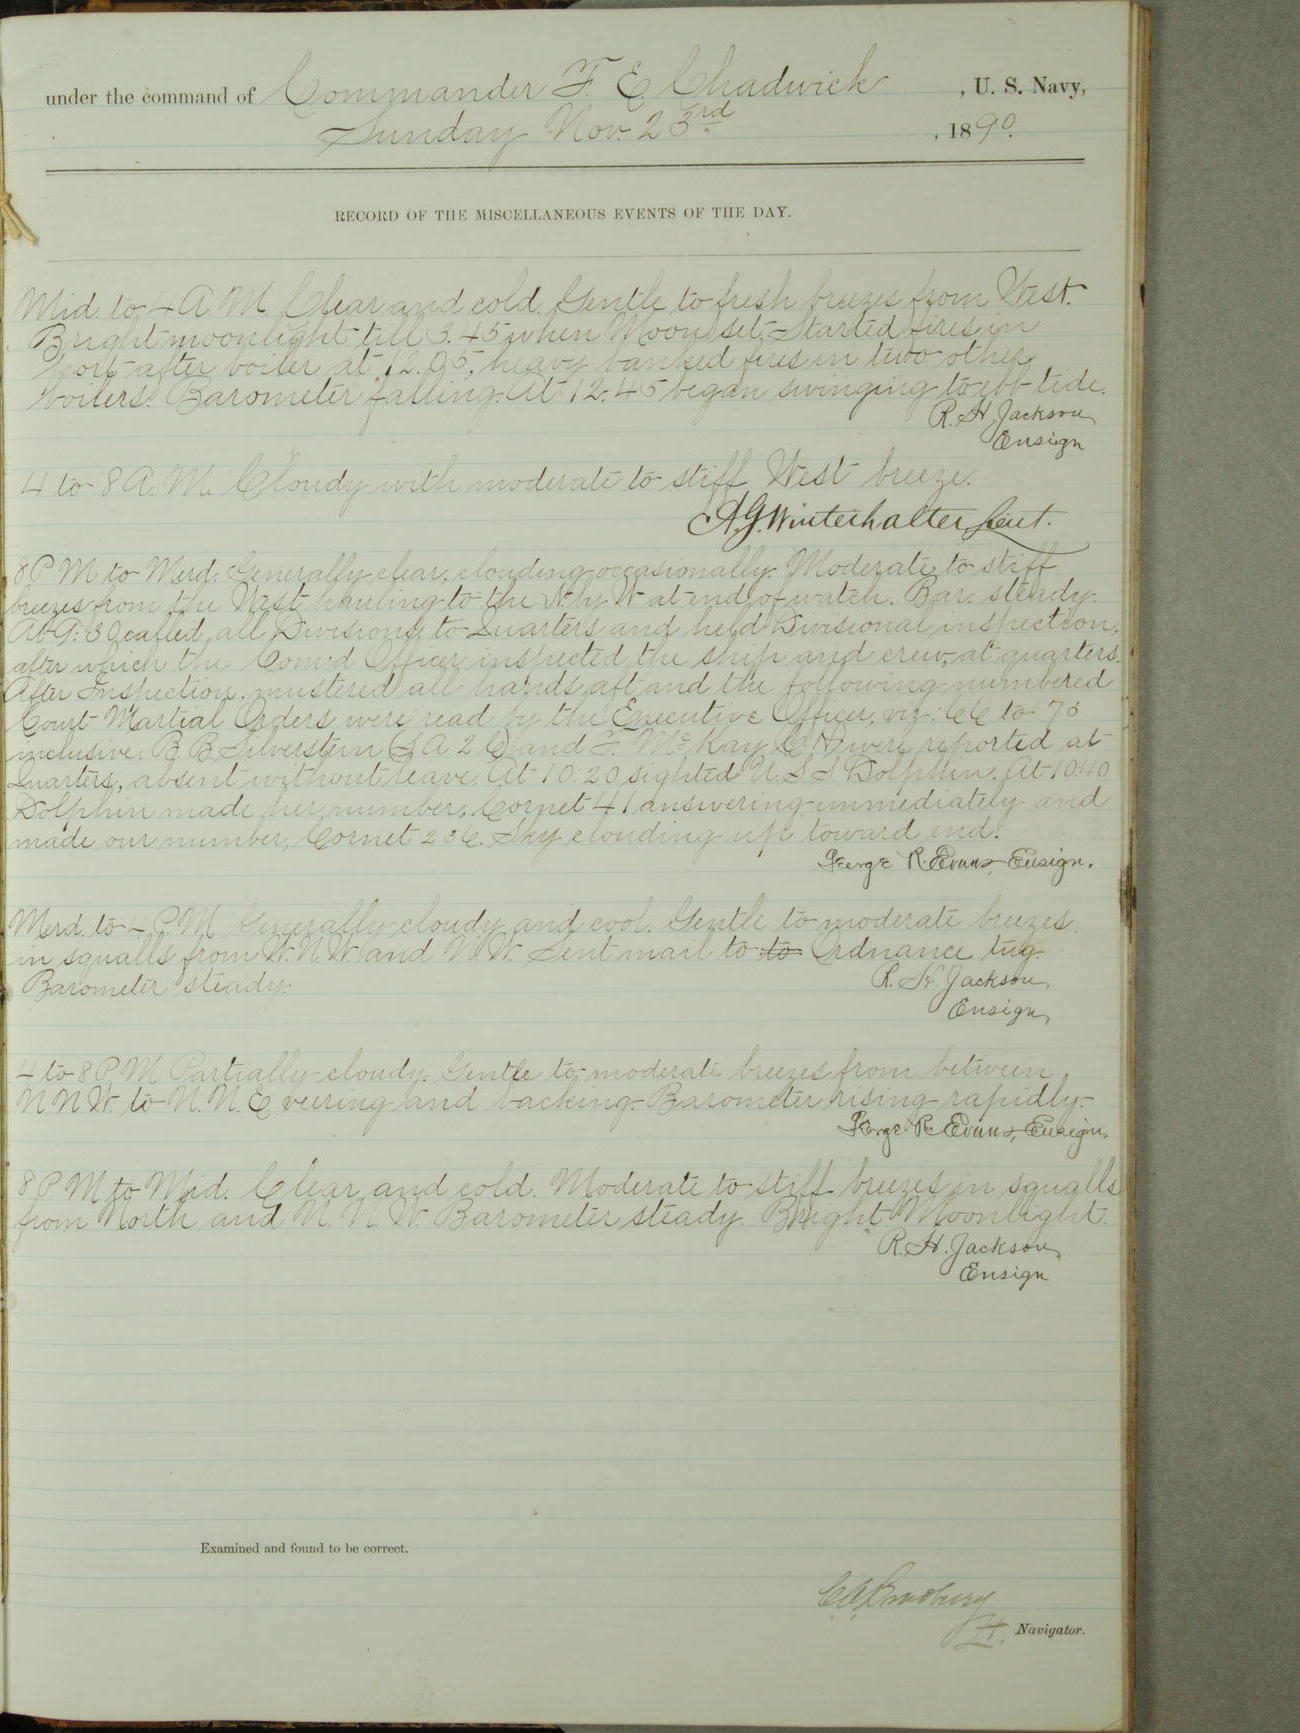 under the command of Commander F. E. Chadwick, U. S. Navy,
Sunday Nov. 23rd, 1890.
RECORD OF THE MISCELLANEOUS EVENTS OF THE DAY.
Mid. to 4 A M. Clear and cold. Gentle to fresh breezes from West.
Bright moonlight till 3.45 when Moon set. Started fires in
port after boiler at 12.05, heavy banked fires in two other
boilers. Barometer falling. At 12.45 began swinging to ebb tide.
R. H. Jackson,
Ensign
4 to 8 A. M. Cloudy with moderate to stiff West breeze.
A. G. Winterhalter, Lieut.
8 P M to Merd. Generally clear, clouding occasionally. Moderate to stiff
breezes from the West hauling to the N by W at end of watch. Bar. steady.
At 9:30 called all Divisions to Quarters and held Divisional inspection,
after which the Com'd Officer inspected the ship and crew, at quarters.
After Inspection. mustered all hands aft and the following numbered
Court Martial Orders were read by the Executive Officer, viz: 66 to 73
inclusive. B. B. Silverstein (S A 2 C) and F. McKay were reported at
Quarters, absent without leave. At 10:20 sighted U. S. S. Dolphin. At 10:40
Dolphin made her number, Cornet 41 answering immediately and
made our number, Cornet Sky clouding up toward end.
George R. Evans, Ensign.
Merd. to 4 P M Generally cloudy and cool. Gentle to moderate breezes
in squalls from W. N. W. and N. W. Sent mail to to Ordnance tug.
Barometer steady.
R. H. Jackson,
Ensign,
4 to 8 P. M. Partially cloudy. Gentle to moderate breezes from between
N N W. to N. N. E veering and backing. Barometer rising rapidly.
George R. Evans, Ensign.
8 P M to Mid. Clear and cold. Moderate to stiff breezes in squalls
from North and N. N. W. Barometer steady. Bright Moonlight.
R. H. Jackson,
Ensign
Examined and found to be correct.
Lt. Navigator.